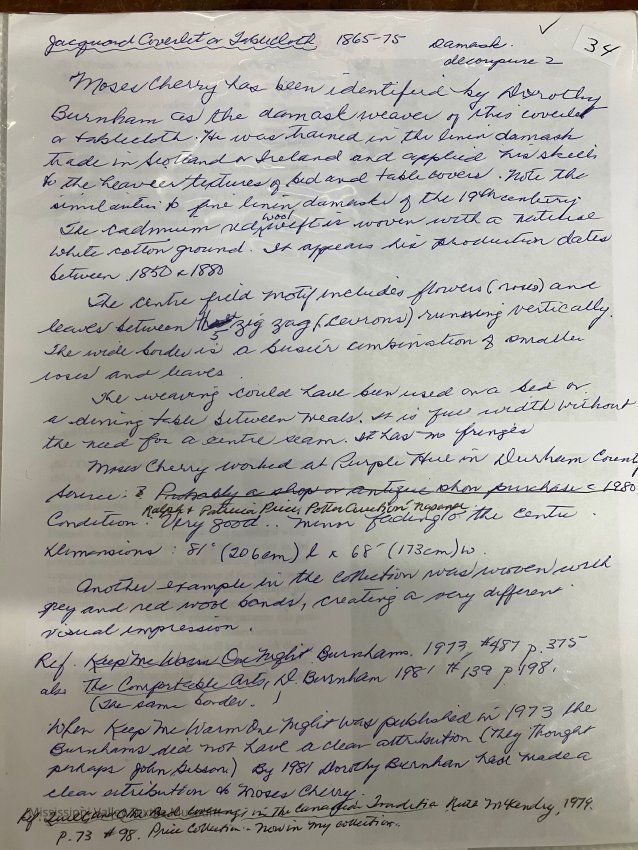 Jacquard Coverlet or Tablecloth 1865-75 Damask.
decoupure 2
34
Moses Cherry has been identified by Dorothy
Burnham as the damask weaver of this coverlet
or tablecloth. He was trained in the linen damask
trade in Scotland or Ireland and applied his skills
to the heavier textures of bed and table covers. Note the
similarities to fine linen damasks of the 19th century.
The cadmium red wool weft is woven with a natural
white cotton ground. It appears his production dates
between 1850 & 1880
The centre field motif includes flowers (roses) and
leaves between 5 zig zag (cevrons) running vertically.
The wide border is a busier combination of smaller
roses and leaves
The weaving could have been used on a bed or
a dining table between meals. It is full width without
the need for a centre seam. It has no fringes
Moses Cherry worked at Purple Hill in Durham County
Source: ? Probably a shop or antique show purchase c 1980
Ralph & Patricia Price, Potter Auction Napanee
Condition: Very good.. minor fading to the centre.
Dimensions: 81" (206cm) l x 68" (173cm) w.
Another example in the collection was woven with
grey and red wool bands, creating a very different
visual impression.
Ref. Keep Me Warm One Night Burnhams. 1973 #487 p. 375
also The Comfortable Arts, D. Burnham 1981 #139 p 198.
(The same border.)
When Keep Me Warm One Night was published in 1973 the
Burnhams did not have a clear attribution (they thought
perhaps John Gibson) By 1981 Dorothy Burnham had made a
clear attribution to Moses Cherry.
Ref. Quilts and Other Bed Coverings in the Canadian Tradition Ruth McKendry, 1979.
p. 73 #98. Price Collection - now in my collection.